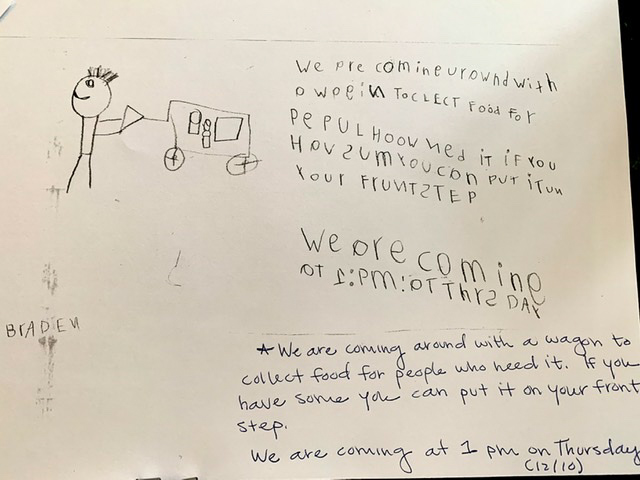 We are comine urownd with
a wagin To CLECT Food For
PePUL HOOW Ned iT iF YOU
HAV SUM YOU CAN PUT iT UN
YOUR FRUNT STEP
We are comine
aT 1:PM: aT THrS DAY
BrADEN
*We are coming around with a wagon to
collect food for people who need it. If you
have some you can put it on your front
step.
We are coming at 1 pm on Thursday
(12/10)